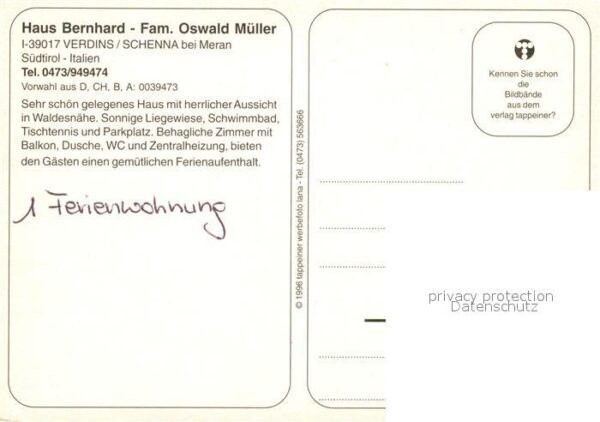 Haus Bernhard - Fam. Oswald Müller
I-39017 VERDINS / SCHENNA bei Meran
Südtirol - Italien
Tel. 0473/949474
Vorwahl aus D, CH, B, A: 0039473
Sehr schön gelegenes Haus mit herrlicher Aussicht
in Waldesnähe. Sonnige Liegewiese, Schwimmbad,
Tischtennis und Parkplatz. Behagliche Zimmer mit
Balkon, Dusche, WC und Zentralheizung, bieten
den Gästen einen gemütlichen Ferienaufenthalt.
1 Ferienwohnung
© 1996 tappeiner werbefoto lana - Tel. (0473) 563666
Kennen Sie schon
die
Bildbände
aus dem
verlag tappeiner?
privacy protection
Datenschutz